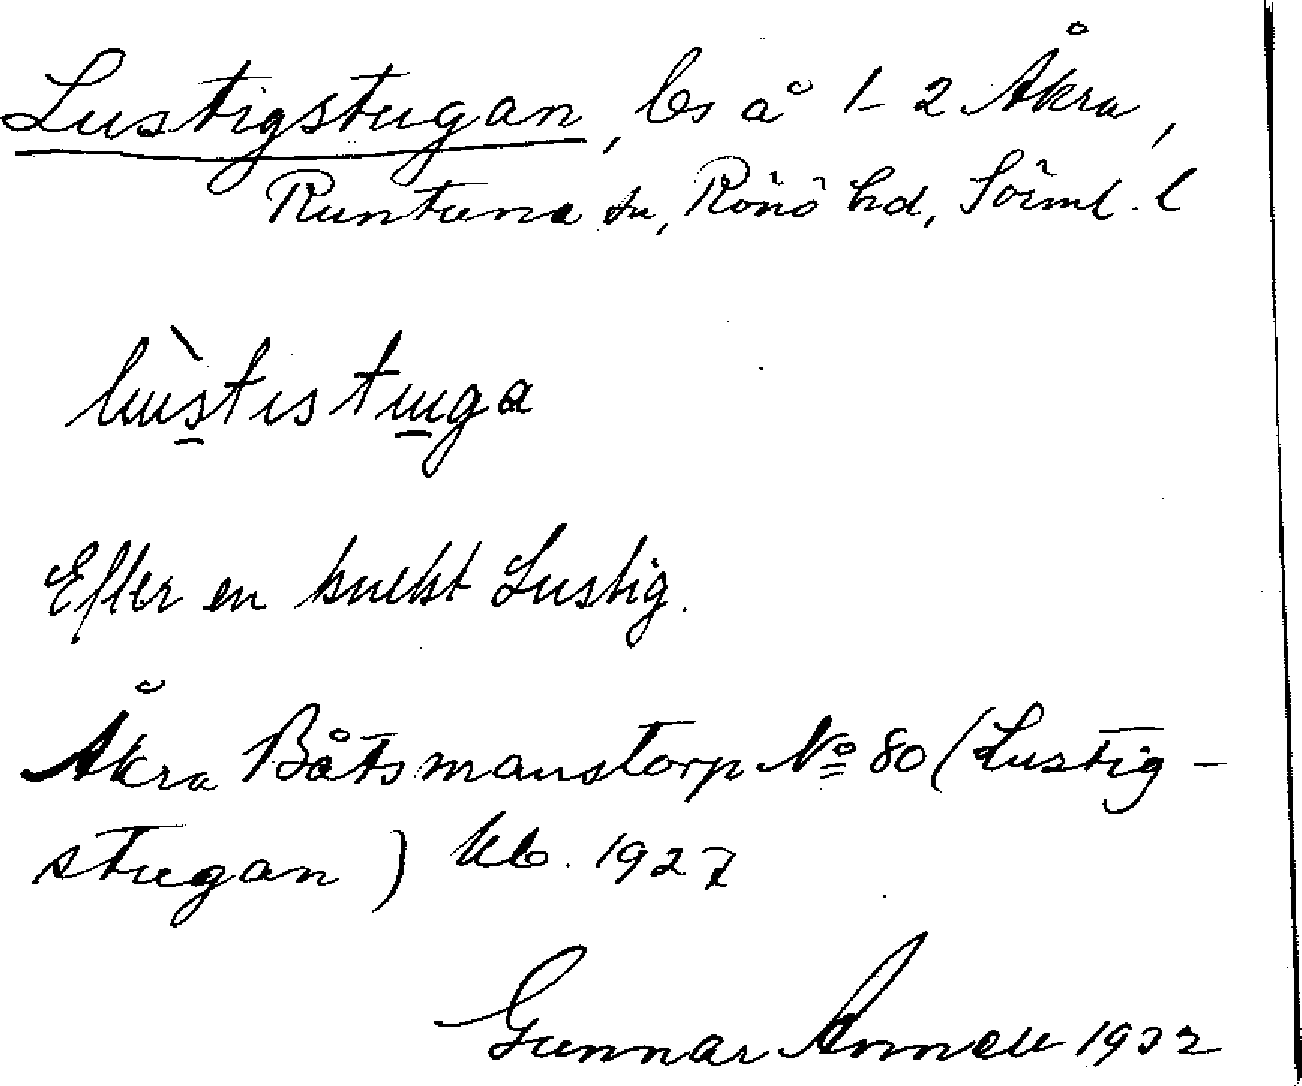 Lustigstugan, ls å 1-2 Åkra,
Runtuna sn, Rönö hd, Söiml. l
lùstistuga
Efter en knekt Lustig.
Åkra Båtsmanstorp No 80 (Lustig-
stugan) kb. 1927
Gunnar Annell 1932